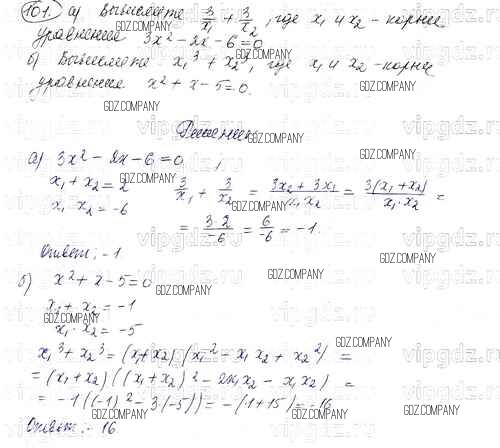 101. а) Вычислите 3/x₁ + 3/x₂, где x₁ и x₂ - корни
уравнения 3x² - 2x - 6 = 0
б) Вычислите x₁³ + x₂³, где x₁ и x₂ - корни
уравнения x² + x - 5 = 0.
GDZ.COMPANY
Решение.
а) 3x² - 2x - 6 = 0,
x₁ + x₂ = 2
x₁ · x₂ = -6
3/x₁ + 3/x₂ = (3x₂ + 3x₁)/(x₁ x₂) = 3(x₁ + x₂)/(x₁ · x₂) =
= (3 · 2)/(-6) = 6/(-6) = -1.
Ответ: -1
б) x² + x - 5 = 0
x₁ + x₂ = -1
x₁ · x₂ = -5
x₁³ + x₂³ = (x₁ + x₂)(x₁² - x₁ x₂ + x₂²) =
= (x₁ + x₂)((x₁ + x₂)² - 2x₁ x₂ - x₁ x₂) =
= -1((-1)² - 3·(-5)) = -(1 + 15) = -16
Ответ: -16.
vipgdz.ru